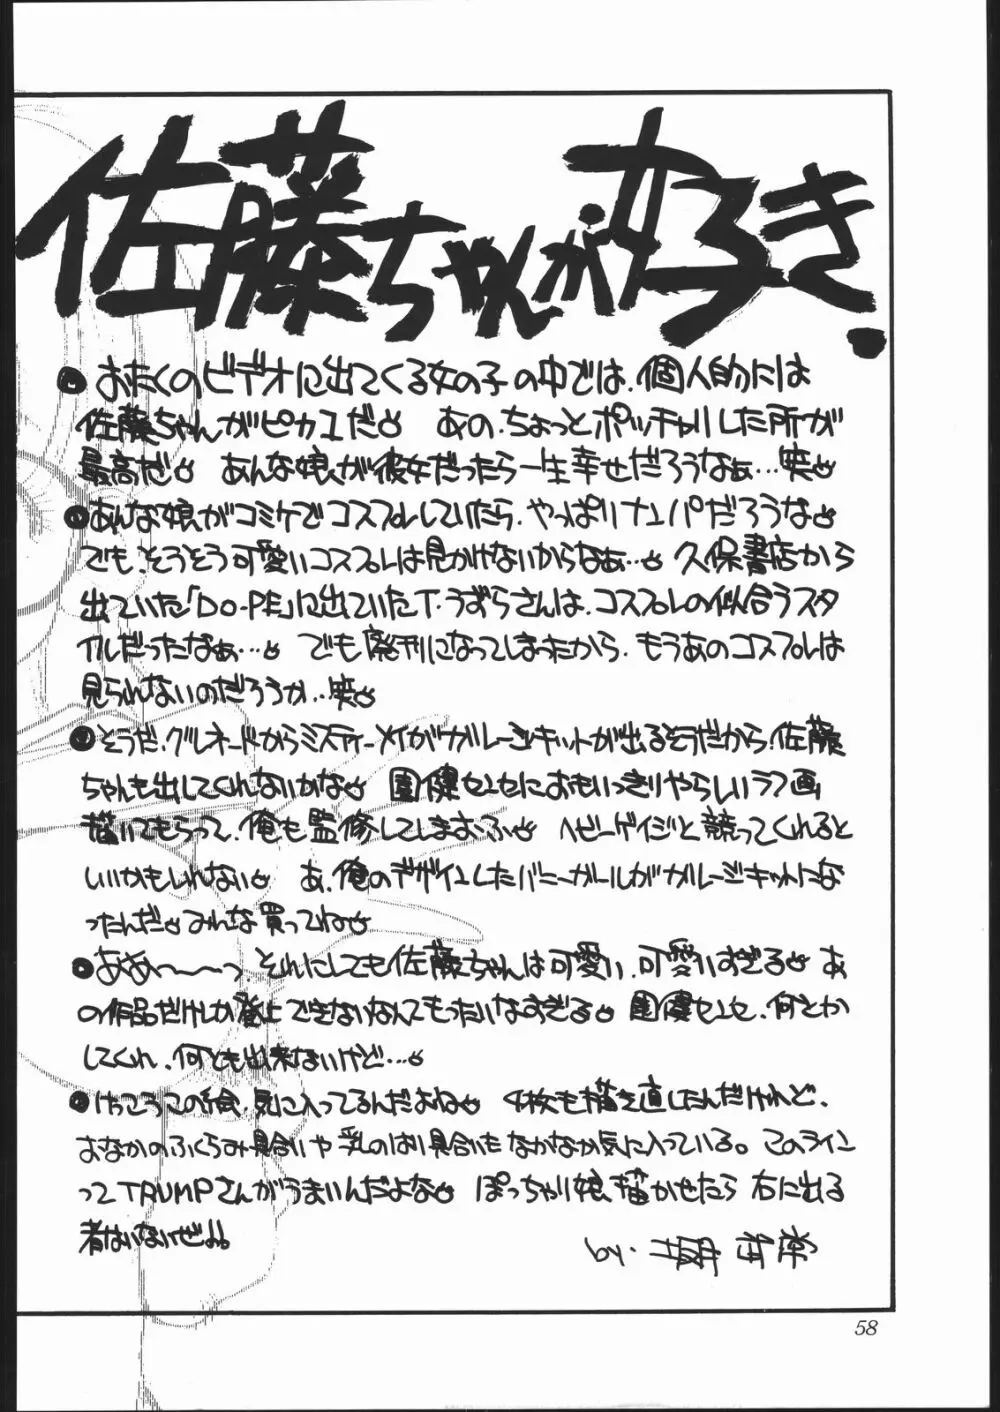 佐藤ちゃんが好き.
●おたくのビデオに出てくる女の子の中では、個人的には
佐藤ちゃんがピカ1だ♡ あの、ちょっとポッチャリした所が
最高だ♡ あんな娘が彼女だったら一生幸せだろうなぁ…笑♡
●あんな娘がコミケでコスプレしていたら、やっぱりナンパだろうな♡
でも、そうそう可愛いコスプレは見かけないからなぁ…♡ 久保書店から
出ていた「DO-PE」に出ていたT・うずらさんは、コスプレの似合うスタ
イルだったなぁ…♡ でも廃刊になってしまったから、もうあのコスプレは
見られないのだろうか…笑♡
●そうだ、グルネードからミスティーメイがガレージキットが出るそうだから、佐藤
ちゃんも出してくれないかな♡ 園健センセにおもいっきりやらしいラフ画
描いてもらって、俺も監修してしまお、ふ♡ ヘビーゲイジと競ってくれると
いいかもしれない♡ あ、俺のデザインしたバニーガールがガレージキットにな
ったんだ♡みんな買ってね♡
●ああ〜〜〜っ、それにしても佐藤ちゃんは可愛い、可愛いすぎる♡ あ
の作品だけしか登上できないなんてもったいなすぎる♡ 園健センセ、何とか
してくれ、何とも出来ないけど…♡
●けっこうこの絵、気に入ってるんだよね♡ 4枚も描き直したんだけれど、
おなかのふくらみ具合いや乳のはり具合いもなかなか気に入っている。このライン
ってTRUMPさんがうまいんだよな♡ ぽっちゃり娘描かせたら右に出る
者はいないぜ!!
by.
58